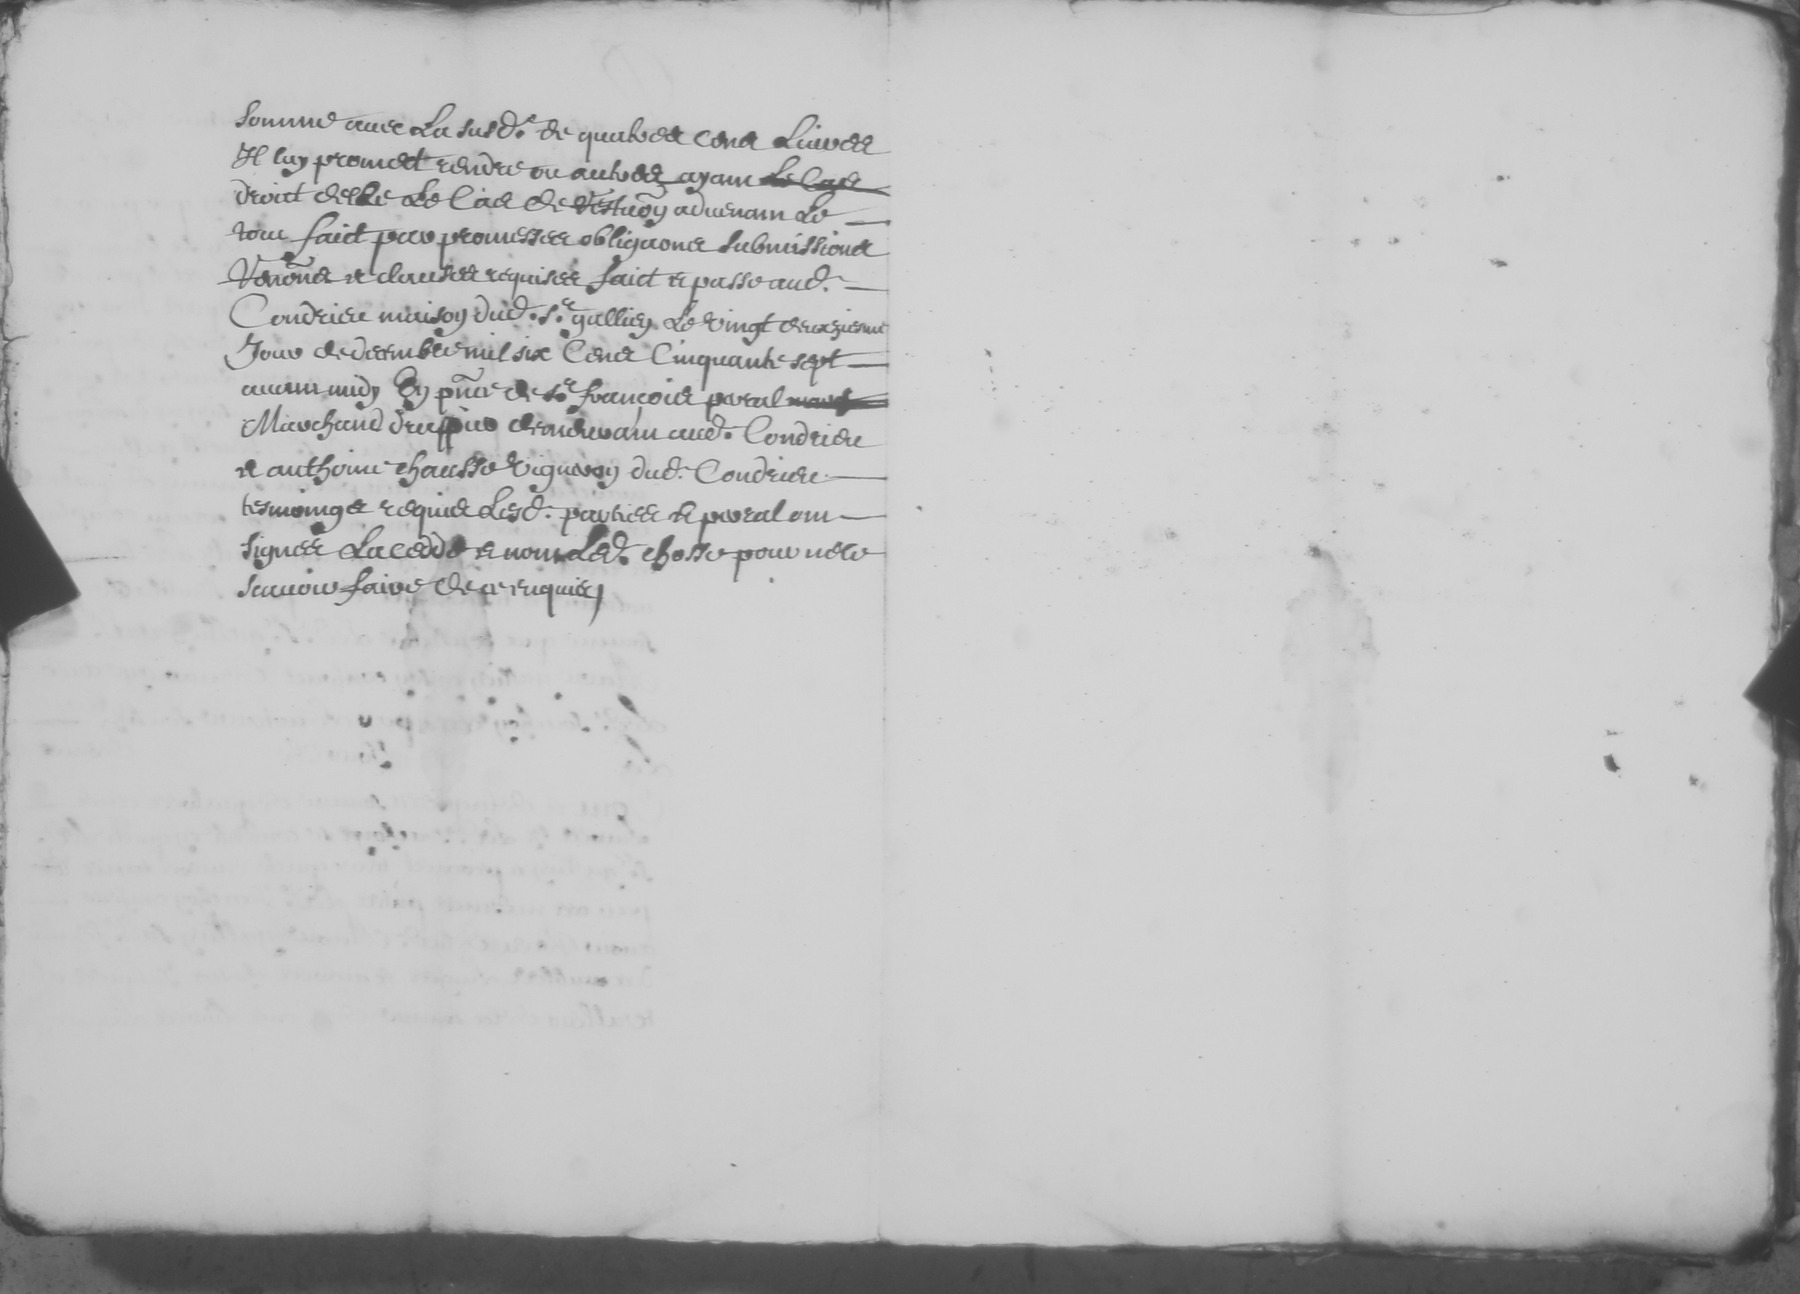 somme avec la susd.e de quatres cens livres
Il luy promect rendre ou autres ayant le cas
droict delle le cas de restituõn advenant le
tout faict par promesses obliga̅ons submissions
Renõns et clauses requises faict et passe aud.
Condrieu maison dud. sr. gallien le vingt deuxziesme
Jour de decembre mil six Cens Cinquante sept
avant midy En pn̅ce de sr. françois peral
Marchand drappier demeurant aud. Condrieu
et anthoine chausse Vigneron dud. Condrieu
tesmoings requis Lesd. parties et peral ont
signes La cedde et non Led. chosse pour ne le
scavoir faire de ce enquis